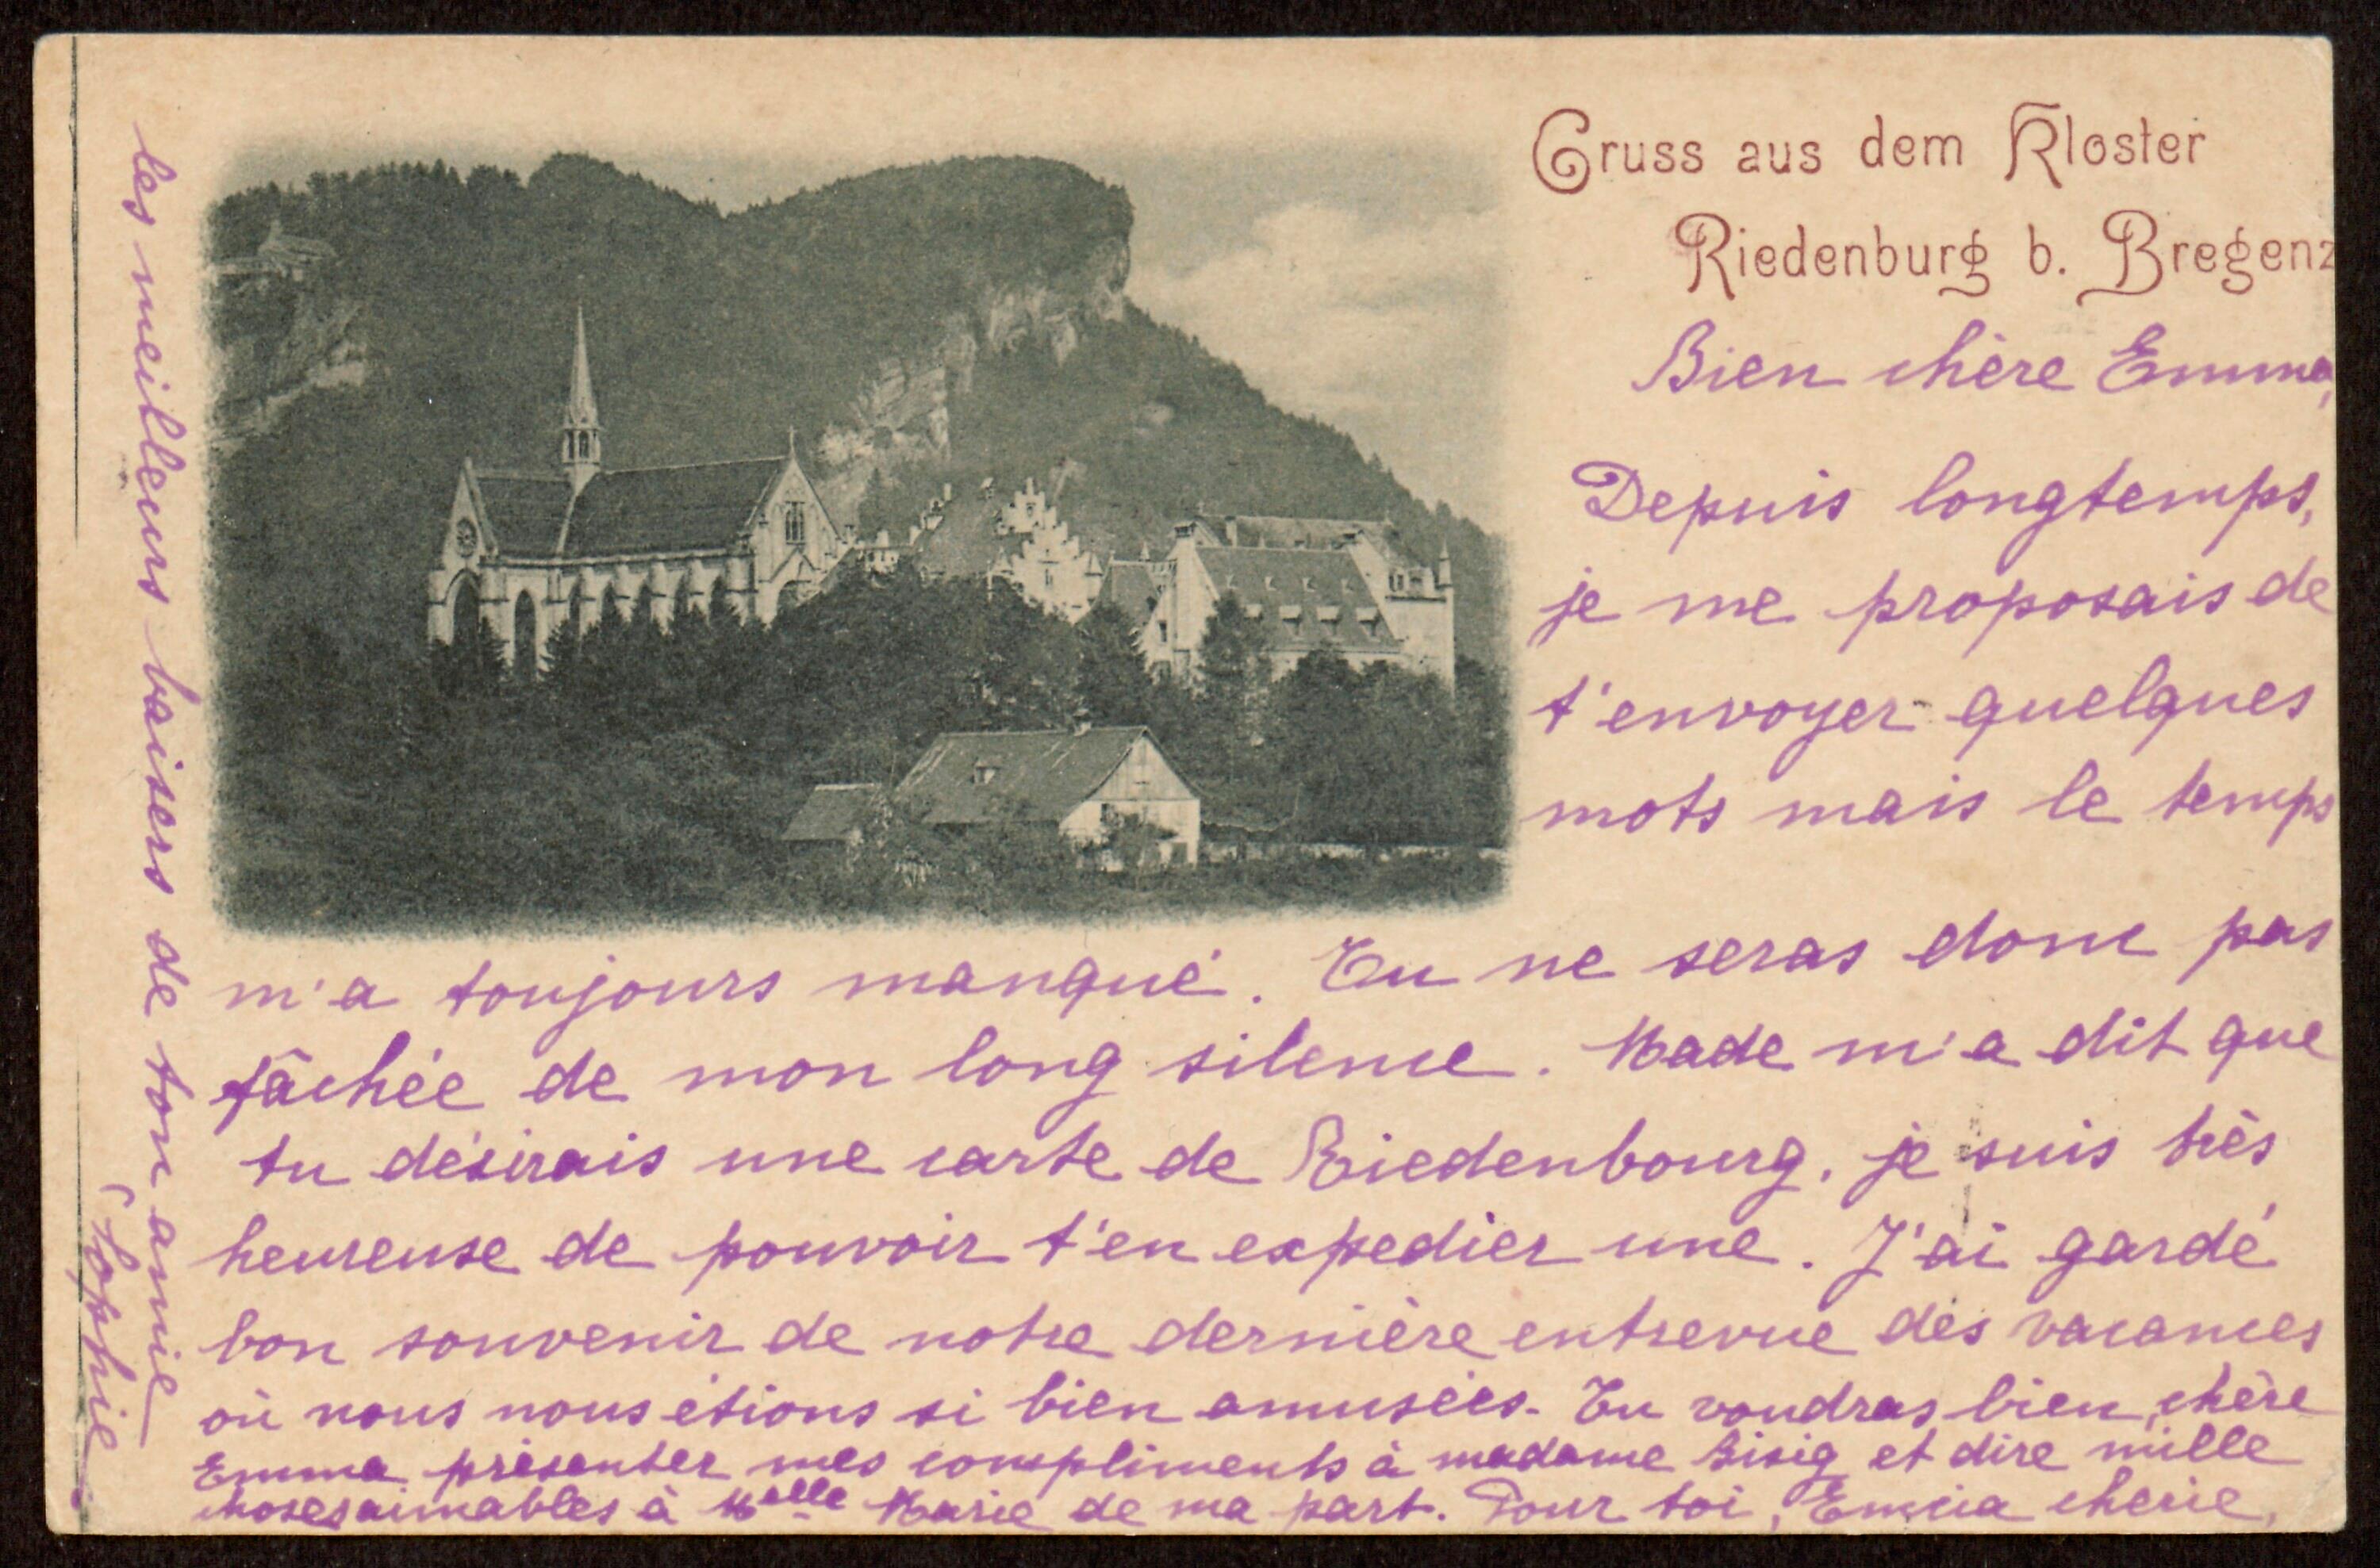 Gruss aus dem Kloster
Riedenburg b. Bregenz
Bien chère Emma,
Depuis longtemps,
je me proposais de
t'envoyer quelques
mots mais le temps
m'a toujours manqué. Tu ne seras donc pas
fâchée de mon long silence. Made m'a dit que
tu désirais une carte de Riedenbourg, je suis très
heureuse de pouvoir t'en expedier une. J'ai gardé
bon souvenir de notre dernière entrevue des vacances
où nous nous étions si bien amusées. Tu voudras bien, chère
Emma présenter mes compliments à madame et dire mille
choses aimables à Melle Marie de ma part. Pour toi, Emma cherie,
les meilleurs baisers de ton amie
Sophie